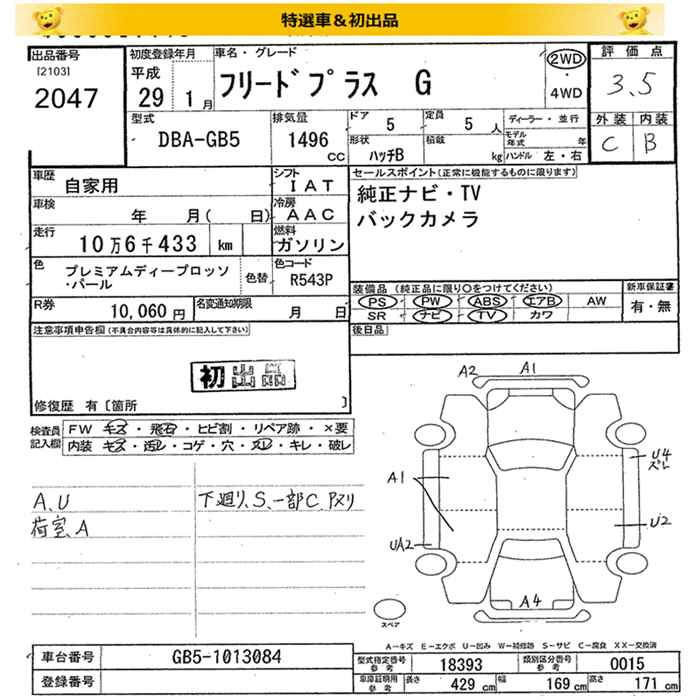 特選車＆初出品
出品番号
[2103]
2047
初度登録年月
平成
29 1月
車名・グレード
フリードプラス G
2WD
・
4WD
評価点
3.5
外装 内装
C B
型式
DBA-GB5
排気量
1496
CC
ドア
5
定員
5 人
形状
ハッチB
積載
kg
ディーラー・並行
モデル
年式 年
ハンドル 左・右
車歴
自家用
シフト
IAT
車検
年 月( 日)
冷房
AAC
走行
10万6千433 km
燃料
ガソリン
色
プレミアムディープロッソ
・パール
色替
色コード
R543P
R券
10,060円
名変通知期限
月 日
セールスポイント(正常に機能するものに限ります)
純正ナビ・TV
バックカメラ
装備品 (純正品に限り〇をつけてください)
PS PW ABS エアB AW
SR ナビ TV カワ
新車保証書
有・無
後日品
注意事項申告欄(不具合内容等は具体的に記入して下さい)
初出品
修復歴 有〔箇所 〕
検査員
記入欄
FW キズ・飛石・ヒビ割・リペア跡・×要
内装 キズ・汚レ・コゲ・穴・ヌレ・キレ・破レ
A、U
荷室A
下廻り、S、一部C
A2 A1
U4
ズレ
A1
U2
UA2
A4
スペア
A－キズ E－エクボ U－凹み W－補修跡 S－サビ C－腐食 XX－交換済
車台番号
GB5-1013084
登録番号
型式指定番号
参考
18393
類別区分番号
参考
0015
車庫証明用
参考
長さ
429 cm
幅
169 cm
高さ
171 cm